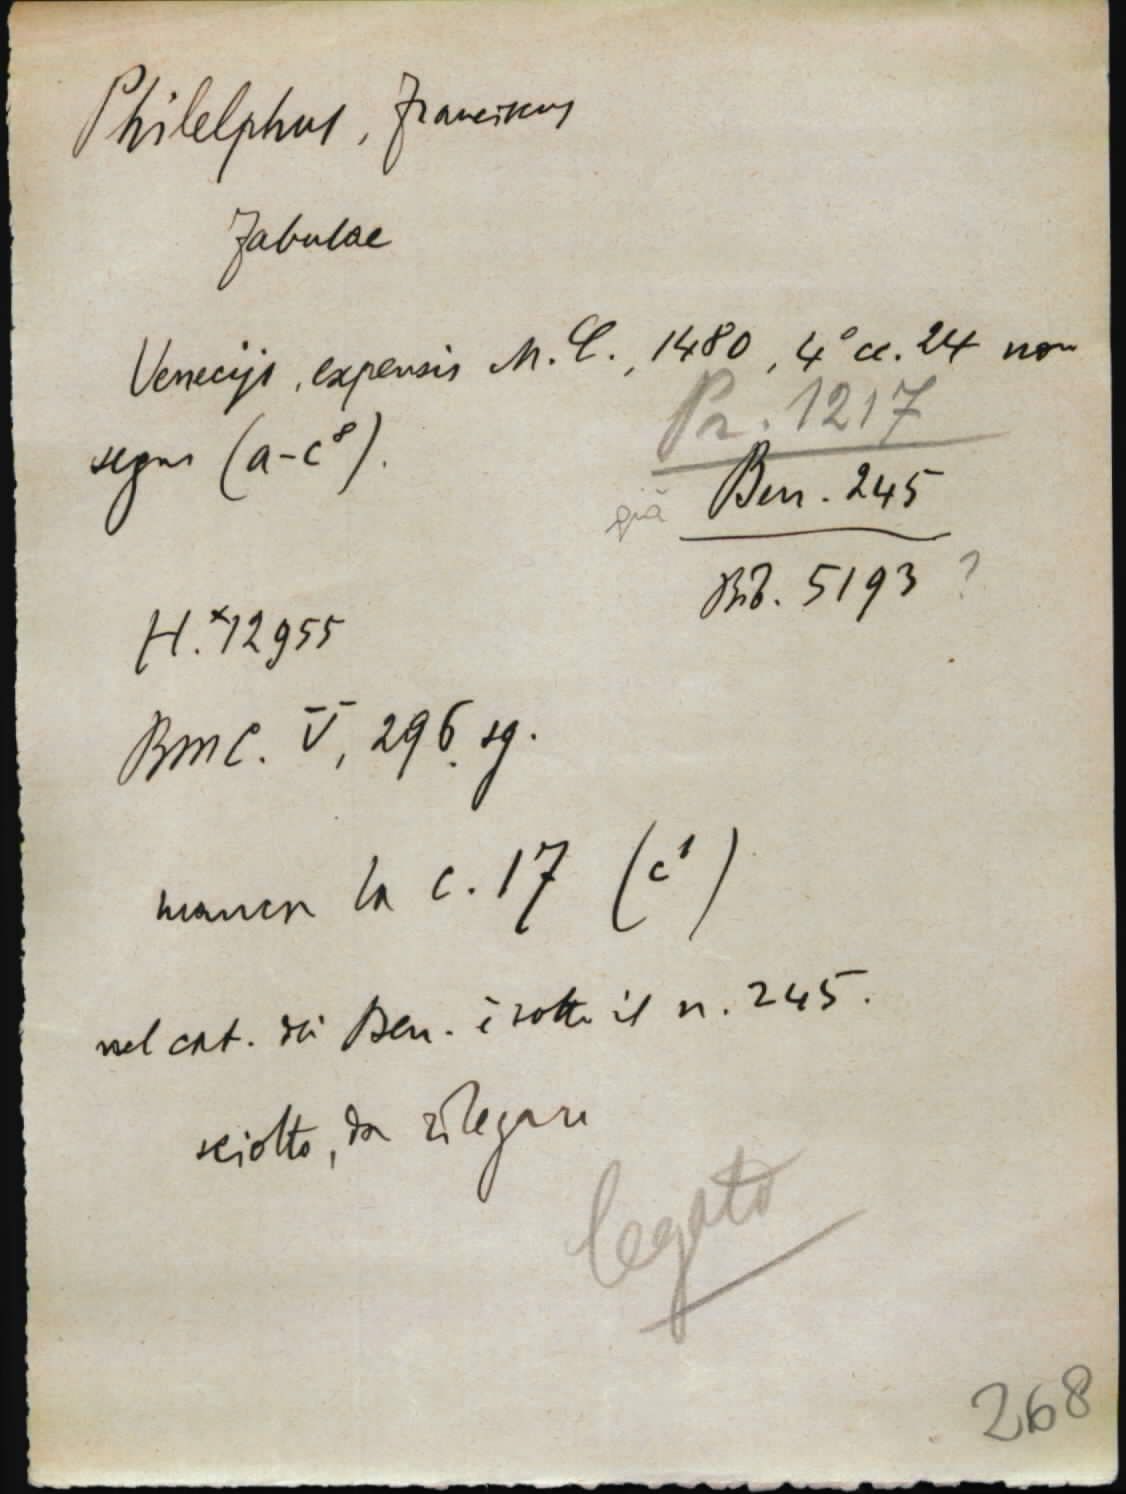 Philelphus, Franciscus
Fabulae
Venecijs, expensis M. C., 1480, 4° cc. 24 non
Pr. 1217
segn (a-c⁸).
già Ben. 245
Bib. 5193 ?
H.*12955
BMC. V, 296 sg.
manca la c. 17 (c¹)
nel cat. di Ben. è sotto il n. 245.
sciolto, da rilegare
legato
268